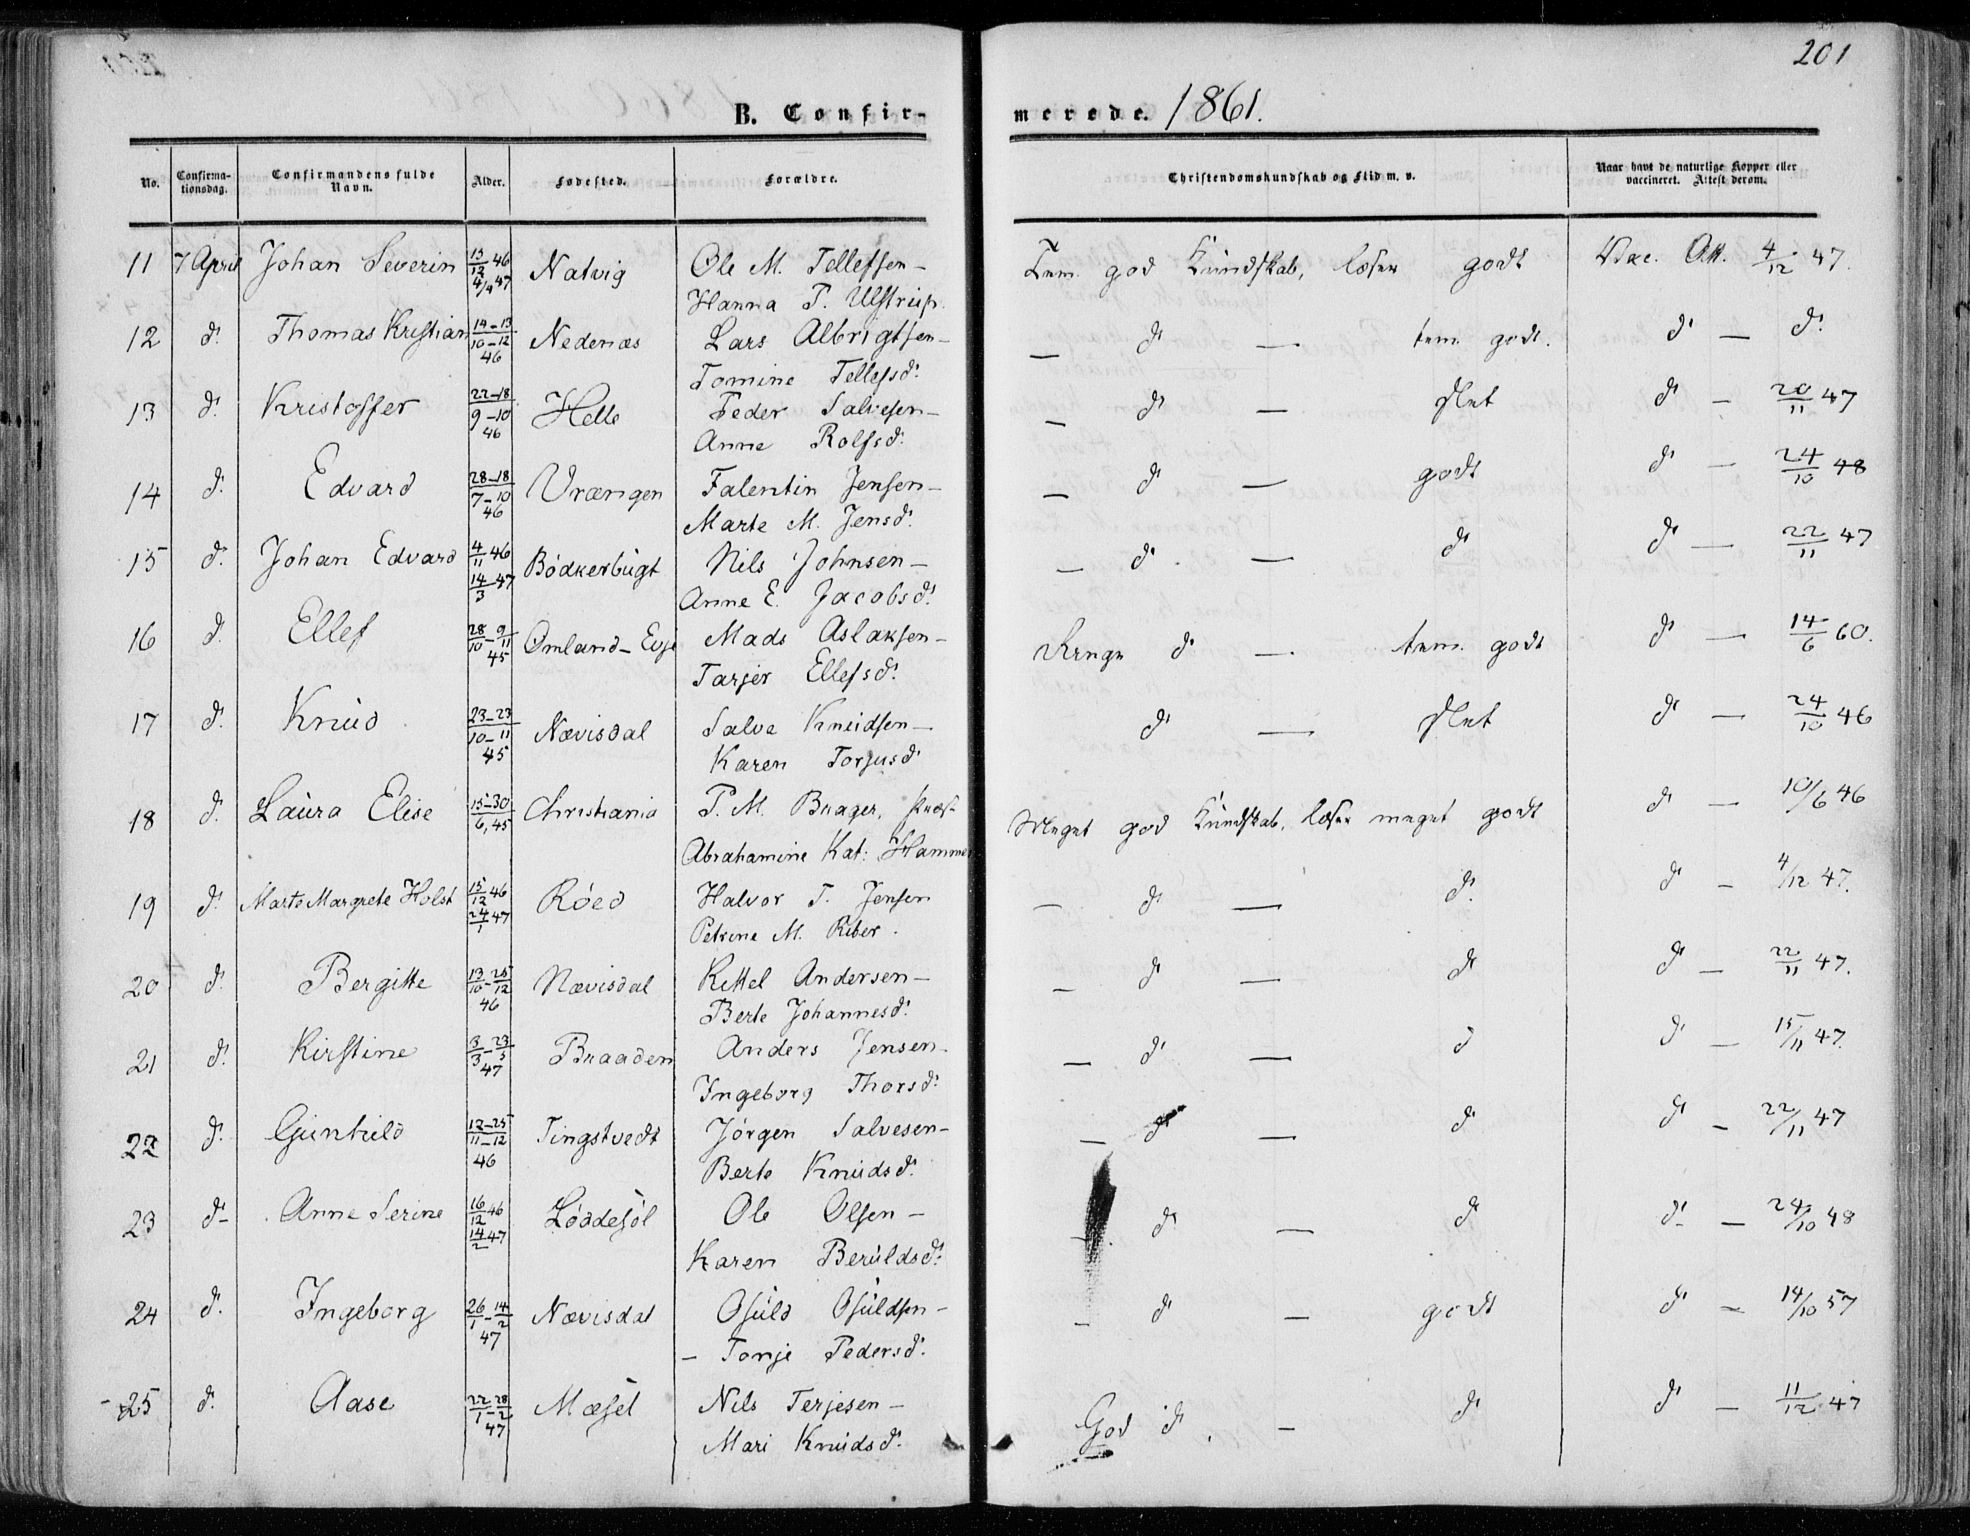 201
B. Confir-
merede. 1861.
No. Confirma-tionsdag. Confirmandens fulde Navn. Alder. Fødested. Forældre. Christendomskundskab og Flid m. v. Naar havt de naturlige Kopper eller vaccineret. Attest derom.
11 7 April Johan Severin 46 4/4 47 Natvig Ole M. Tellefsen – Tem. god Kundskab, læser godt Vac. Att. 4/12 47.
Hanna P. Ulstrup.
12 d. Thomas Kristian 14–13 10–12 46 Nedenæs Lars Albrigtsen – – d – tem. godt. d – d.
Tomine Tellefsd.
13 d. Kristoffer 22–18 9–10 46 Helle Peder Salvesen – – d – slet d – 20/11 47
Anne Rolfsd.
14 d. Edvard 28–18 7–10 46 Vrængen Falentin Jensen – – d – godt d – 24/10 48
Marte M. Jensd.
15 d. Johan Edvard 4/11 46 14/3 47 Bödkerbugt Nils Johnsen – – d. – d d – 22/11 47
Anne E. Jacobsd.
16 d. Ellef 28/10 – 9/11 45 Omland – Evje Mads Aslaksen – Ringe d – tem. godt d – 14/6 60.
Tarjer Ellefsd.
17 d. Knud 23–23 10–11 45 Nævisdal Salve Knudsen – d – slet d – 24/10 46
Karen Torjusd.
18 d. Laura Elise 15–30 6, 45 Christiania P. M. Brager, Præst Meget god Kundskab, læser meget godt d – 10/6 46
Abrahamine Kat: Hammer
19 d. Marte Margrete Holst 15/12 46 24/1 47 Röed Halvor T. Jensen – d – d. d – 4/12 47.
Petrine M. Riber.
20 d. Bergitte 13/10 – 25/12 46 Nævisdal Kittel Andersen – – d – d d – 22/11 47.
Berte Johannesd.
21 d. Kirstine 3/3 – 23/5 47 Braaden Anders Jensen – – d – d d – 15/11 47.
Ingeborg Thorsd.
22 d. Gunhild 12–25 11–12 46 Tingstvedt Jörgen Salvesen – – d – d d – 22/11 47
Berte Knudsd.
23 d – Anne Serine 16/12 46 14/2 47 Löddesöl Ole Olsen – – d – d d – 24/10 48
Karen Beruldsd.
24 d. Ingeborg 26/1 – 14/2 47 Nævisdal Osuld Osuldsen – – d – godt d – 14/10 57
– Tonje Pedersd.
25 d. Aase 22/1 – 28/2 47 Mæsel Nils Terjesen – God d. – d d – 11/12 47
Mari Knudsd.